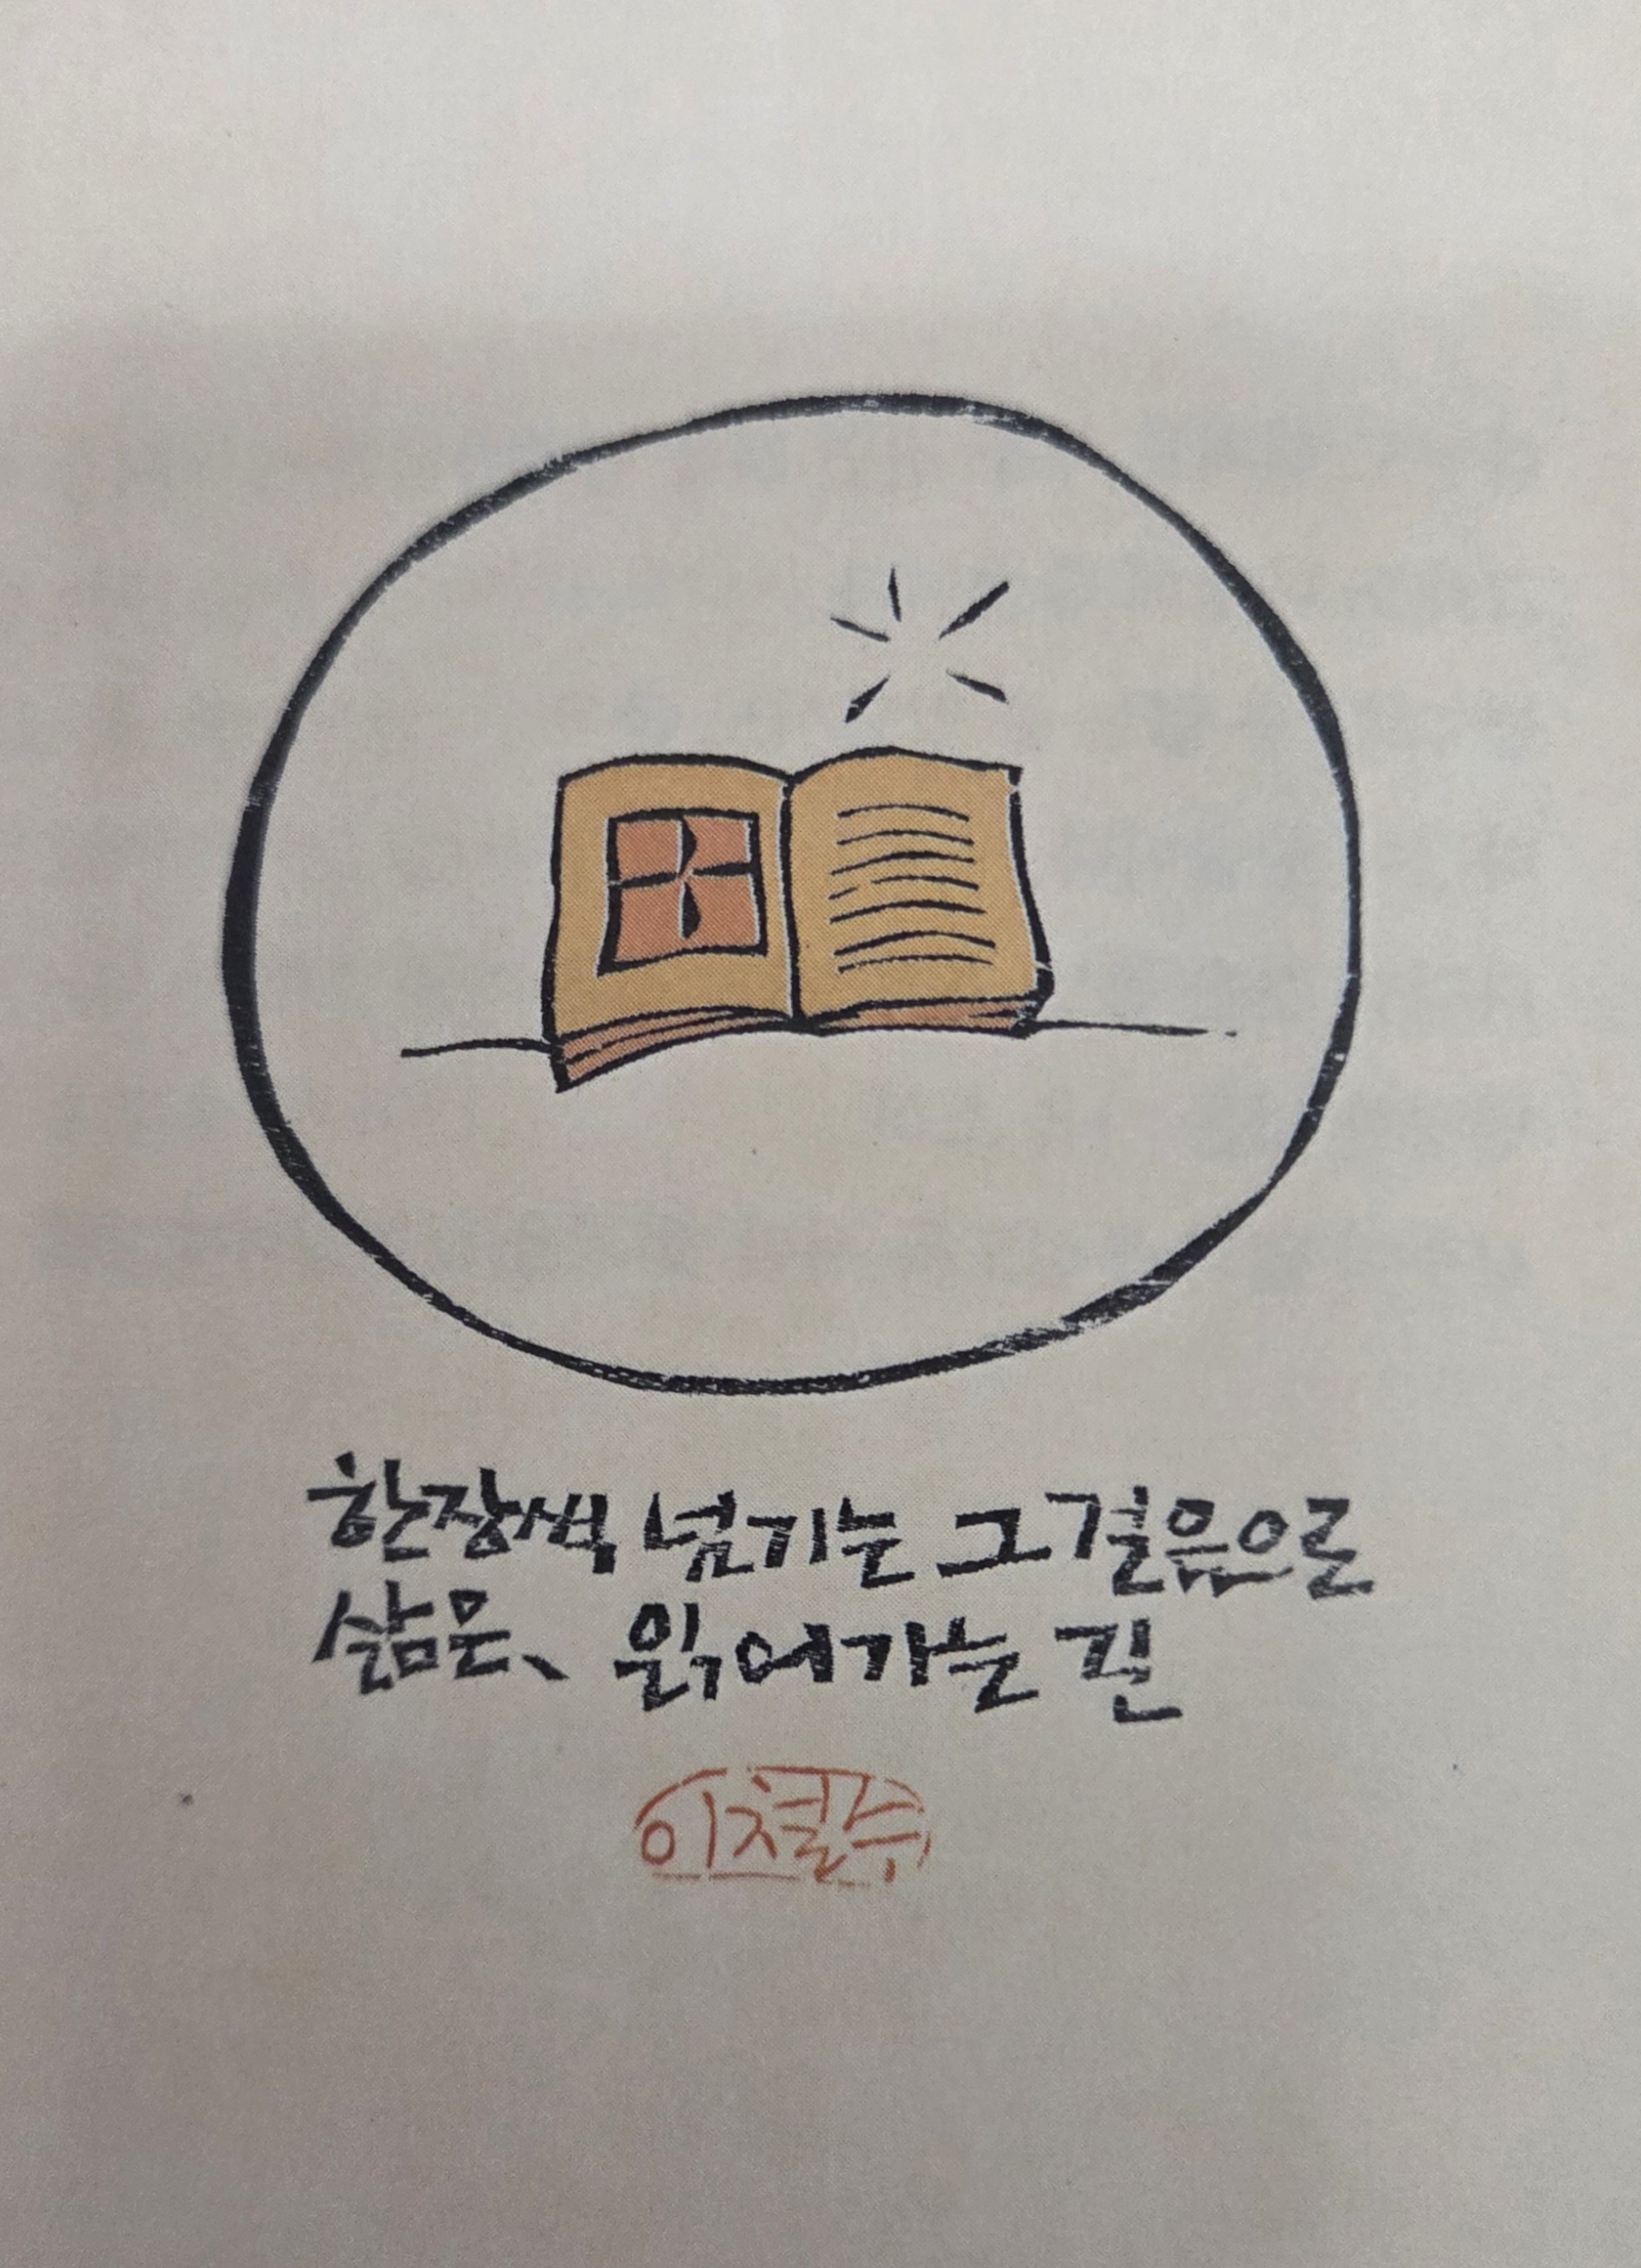 한장씩 넘기는 그 걸음으로
삶은、 읽어가는 긴
이철수